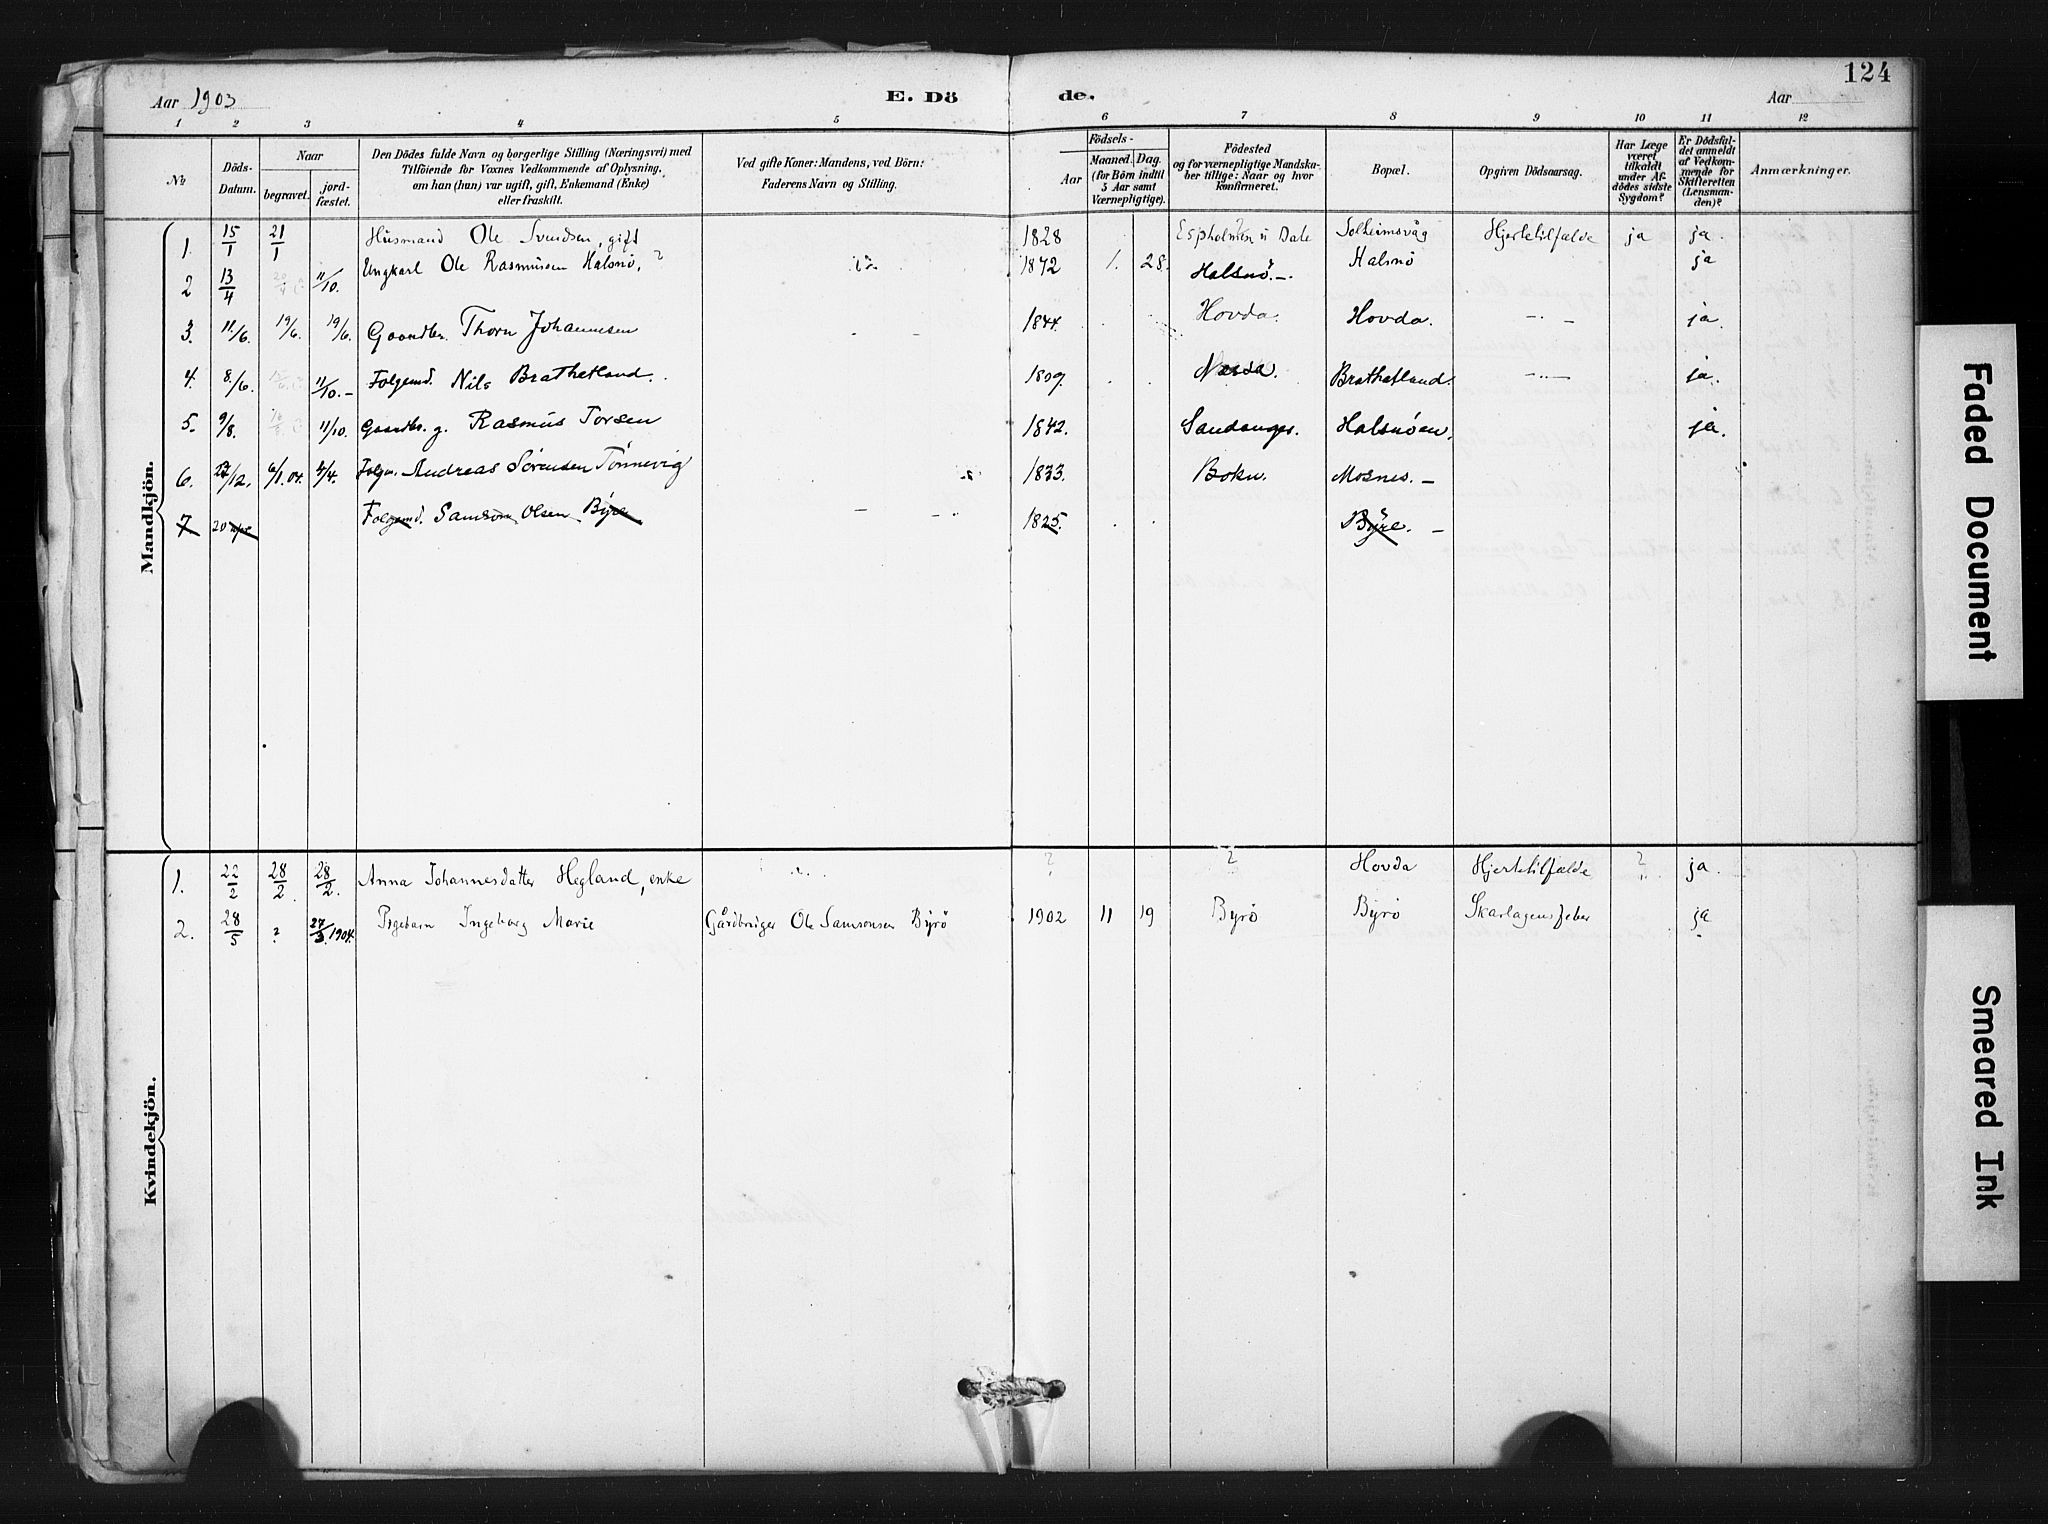 124
Aar 1903 E. Dö de. Aar
1 2 3 4 5 6 7 8 9 10 11 12
№ Döds-Datum. Naar begravet. jord-fæstet. Den Dödes fulde Navn og borgerlige Stilling (Næringsvei) med Tilföiende for Voxnes Vedkommende af Oplysning, om han (hun) var ugift, gift, Enkemand (Enke) eller fraskilt. Ved gifte Koner: Mandens, ved Börn: Faderens Navn og Stilling. Aar Födsels- Maaned. Dag. (for Börn indtil 5 Aar samt Værnepligtige). Födested og for værnepligtige Mandska-ber tillige: Naar og hvor konfirmeret. Bopæl. Opgiven Dödsaarsag. Har Læge været tilkaldt under Af-dödes sidste Sygdom? Er Dödsfal-det anmeldt af Vedkom-mende for Skifteretten (Lensman-den)? Anmærkninger.
Mandkjön.
1. 15/1 21/1 Husmand Ole Svendsen, gift 1828 Espholmen i Dale Solheimsvåg Hjertetilfælde ja ja.
2 13/4 11/10. Ungkarl Ole Rasmussen Halsnö, ? 1872 1. 28. Halsnö. Halsnö ja
3. 11/6. 19/6. 19/6. Gaardbr. Thorn Johannesen 1844. Hovda. Hovda. ja.
4. 8./6. 11/10. Folgemd. Nils Brathetland. 1809. Brathetland. ja.
5. 9/8. 11/10. Gaardbr. g. Rasmus Torsen 1842. Sandanger. Halsnöen. ja.
6. /12. 6/1.04. 4/4. Folgm. Andreas Sörensen Tönnevig 1833. Bokn. Mosnes.
7 20 Folgemd. Samson Olsen Byre 1825. Byre.
Kvindekjön.
1. 22/2 28/2 28/2. Anna Johannesdatter Hegland, enke ? ? Hovda Hjertetilfælde ? ja.
2. 28/5 ? 27/3. 1904. Pigebarn Ingeborg Marie Gårdbruger Ole Samsonsen Byrö 1902 11 19 Byrö Byrö Skarlagensfeber ja
Faded Document
Smeared Ink